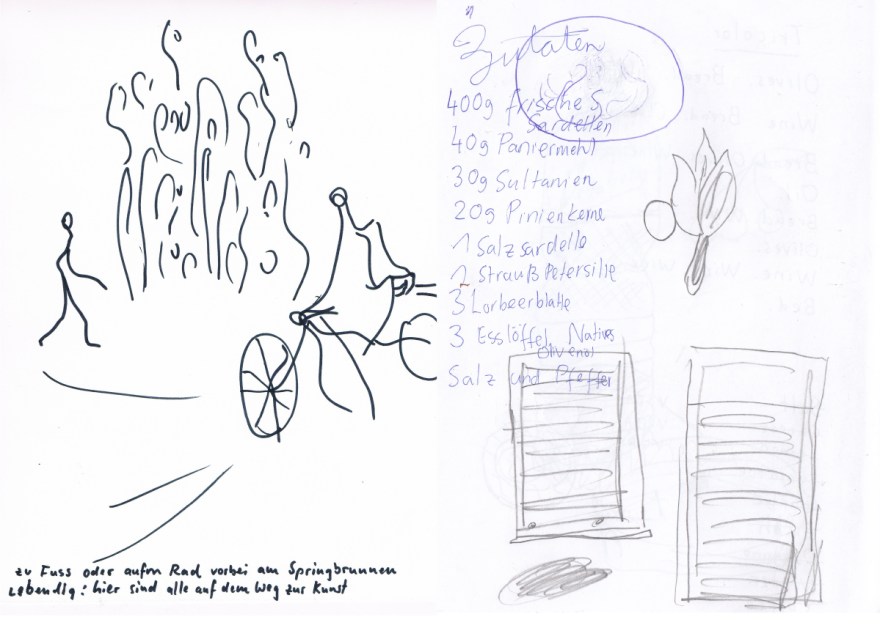 zu Fuss oder aufm Rad vorbei am Springbrunnen
Lebendig: hier sind alle auf dem Weg zur Kunst
Zutaten
400g frische S
Sardellen
40g Paniermehl
30g Sultanien
20g Pinienkerne
1 Salzsardelle
1 Strauß Petersilie
3 Lorbeerblatte
3 Esslöffel Natives
Olivenöl
Salz und Pfeffer